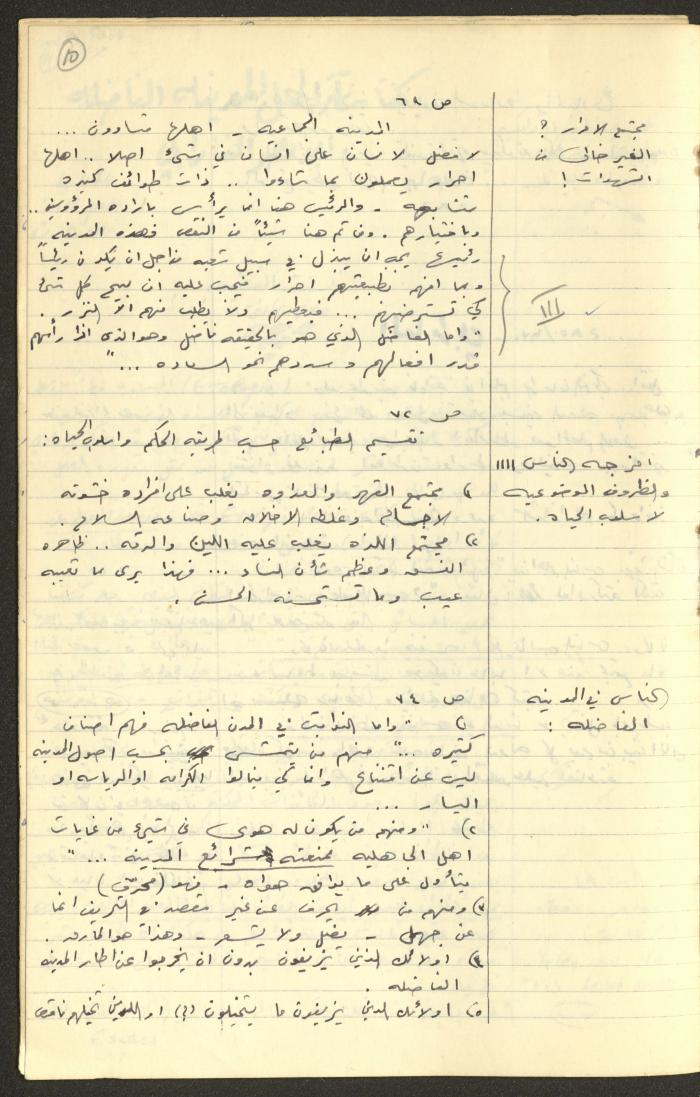 ١٥
ص ٦٩
مجتمع الاحرار ؟
الغير خالي من
الشهوات !
المدينه الجماعيه - اهلها متساوون ...
لا فضل لانسان على انسان في شيء اصلا .. اهلها
احرار يعملون بما شاءوا .. ذات طوائف كثيره
متشابهه - والرئيس هنا انما يرأس باراده المرؤوسين ..
وباختيارهم . ومن ثم هنا شيئاً من النقص فهذه المدينه
رئيسها يجب ان يبذل في سبيل شعبه من اجل ان يكون رئيساً
وبما انهم بطبيعتهم احرار فيجب عليه ان يبيح كل شيء
كي تسترضيهم ... فيعطيهم ولا يطلب منهم الا النزر .
III
"واما الفاضل الذي هو بالحقيقه فاضل وهو الذي اذا رأسهم
قدر افعالهم وسددهم نحو السعاده ..."
ص ٧٢
تقسيم الطبائع حسب طريقه الحكم واسلوب الحياه :
امزجه الناس !!!!
والظروف الموضوعيه
لاسلوب الحياه .
١) مجتمع القهر والعداوه يغلب على افراده خشونه
الاجسام وغلظه الاخلاق وصناعه السلاح .
٢) مجتمع اللذه يغلب عليه اللين والرقه .. ظاهره
الفسق وعظم شأن النساء ... فهذا يرى ما تعيبه
عيب وما تستحسنه الحسن .
الناس في المدينه
الفاضله :
ص ٧٤
١) "واما النوابت في المدن الفاضله فهم اصناف
كثيره ..." منهم من يتمشى بحسب اصول المدينه
ليس عن اقتناع وانما كي ينالوا الكرامه او الرياسه او
اليسار ...
٢) "ومنهم من يكون له هوى في شيء من غايات
اهل الجاهليه فمنعته شرائع المدينه ..."
يتأول على ما يوافق هواه - فهو (محرّف)
٣) ومنهم من يحرف عن غير مقصد في التحريف انما
عن جهل - يضل ولا يشعر - وهذا هو المارقه .
٤) اولائك الذين يزيفون يدون ان يخرجوا عن اطار المدينه
الفاضله .
٥) اولائك الذين يزيفون ما يتخيلون (؟) او الذين تخيلهم ناقص